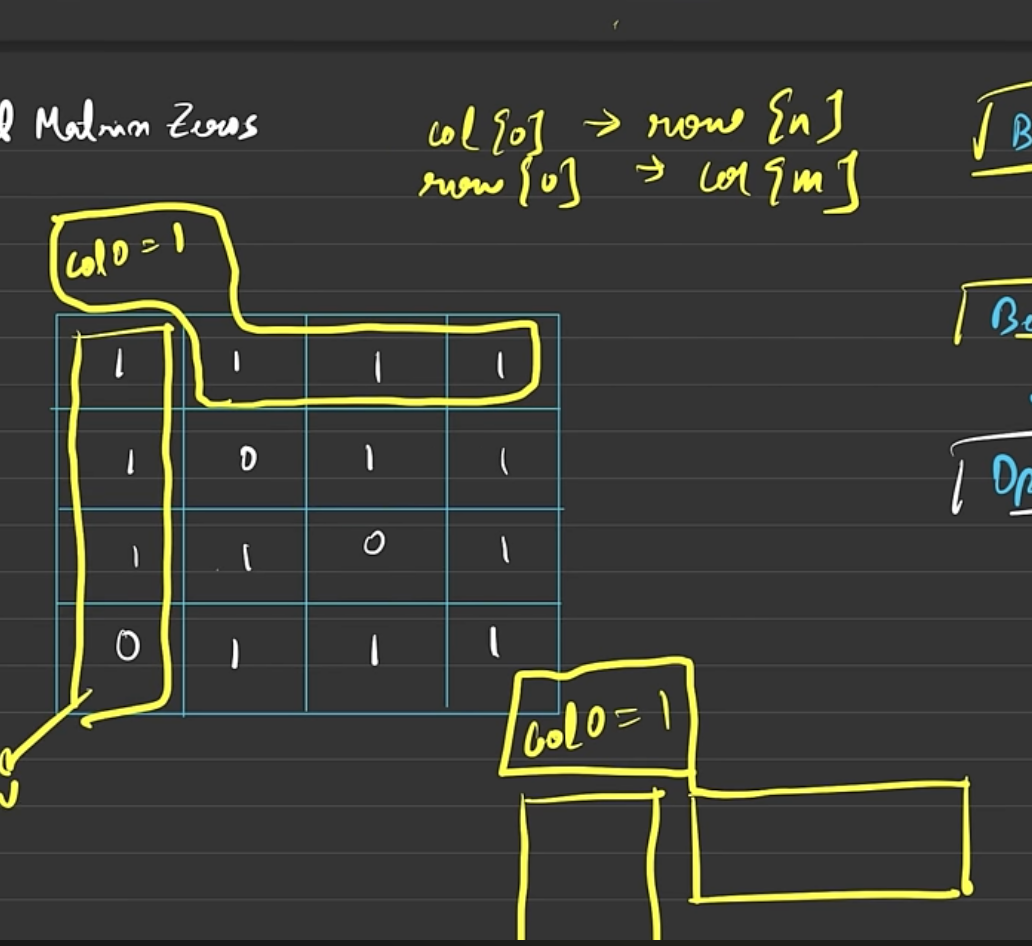 Matrix Zeros
col[0] → row [n]
row[0] → col [m]
col0 = 1
1 1 1 1
1 0 1 1
1 1 0 1
0 1 1 1
col0 = 1